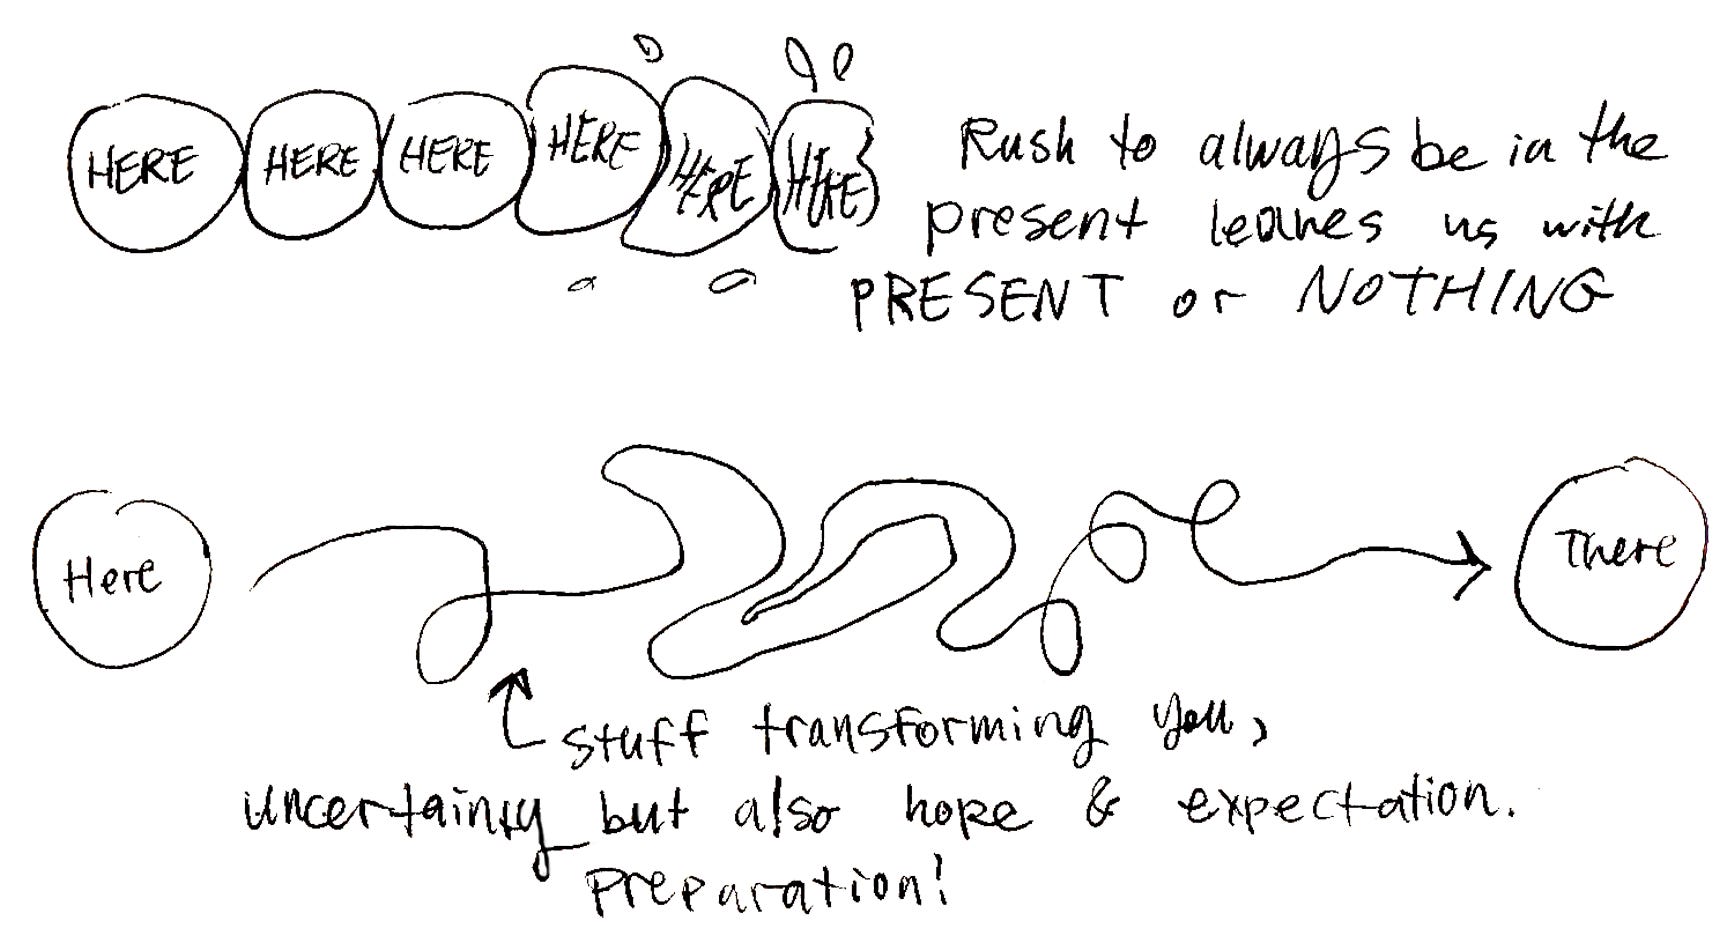 HERE HERE HERE HERE HERE HERE
Rush to always be in the
present leaves us with
PRESENT or NOTHING
Here
There
stuff transforming you,
uncertainty but also hope & expectation.
preparation!